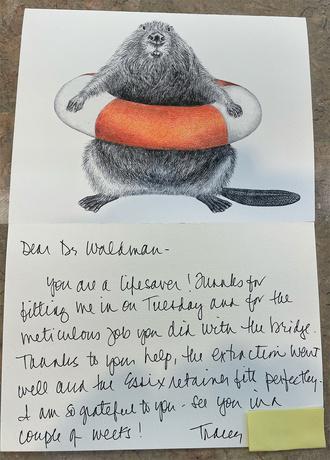 Dear Dr Waldman-
You are a lifesaver! Thanks for
fitting me in on Tuesday and for the
meticulous job you did with the bridge.
Thanks to your help, the extraction went
well and the Essix retainer fits perfectly.
I am so grateful to you - See you in a
couple of weeks!
Tracey